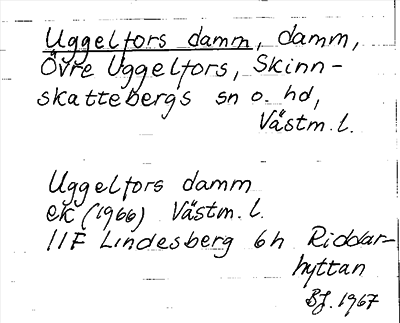 Uggelfors damm, damm,
Övre Uggelfors, Skinn-
skattebergs sn o. hd,
Västm. l.
Uggelfors damm
ek (1966) Västm. l.
11F Lindesberg 6h Riddar-
hyttan
BJ. 1967